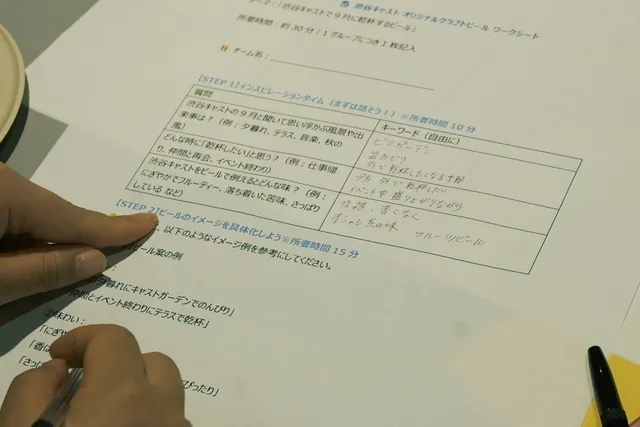 テーマ：「渋谷キャストで9月に乾杯するビール」
渋谷キャスト オリジナルクラフトビール ワークシート
所要時間：約30分｜1グループにつき1枚記入
チーム名：
【STEP 1】インスピレーションタイム（まずは話そう！）※所要時間10分
質問
キーワード（自由に）
渋谷キャストの9月と聞いて思い浮かぶ風景や出
来事は？（例：夕暮れ、テラス、音楽、秋の
風）
ビアガーデン
盆おどり
外で乾杯したくなる季節
どんな時に「乾杯したい」と思う？（例：仕事帰
り、仲間と再会、イベント終わり）
外で乾杯したい
イベント中 盛り上がりながら
渋谷キャストをビールで例えるとどんな味？（例：
にぎやかでフルーティー、落ち着いた苦味、さっぱり
している など）
苦くなく
オシャレ系の味
フルーツビール
【STEP 2】ビールのイメージを具体化しよう※所要時間15分
、以下のようなイメージ例を参考にしてください。
ビール案の例
夕暮れにキャストガーデンでのんびり」
仲間とイベント終わりにテラスで乾杯」
②味わい：
「にぎや
「香は
「さっぱ
ぴったり」